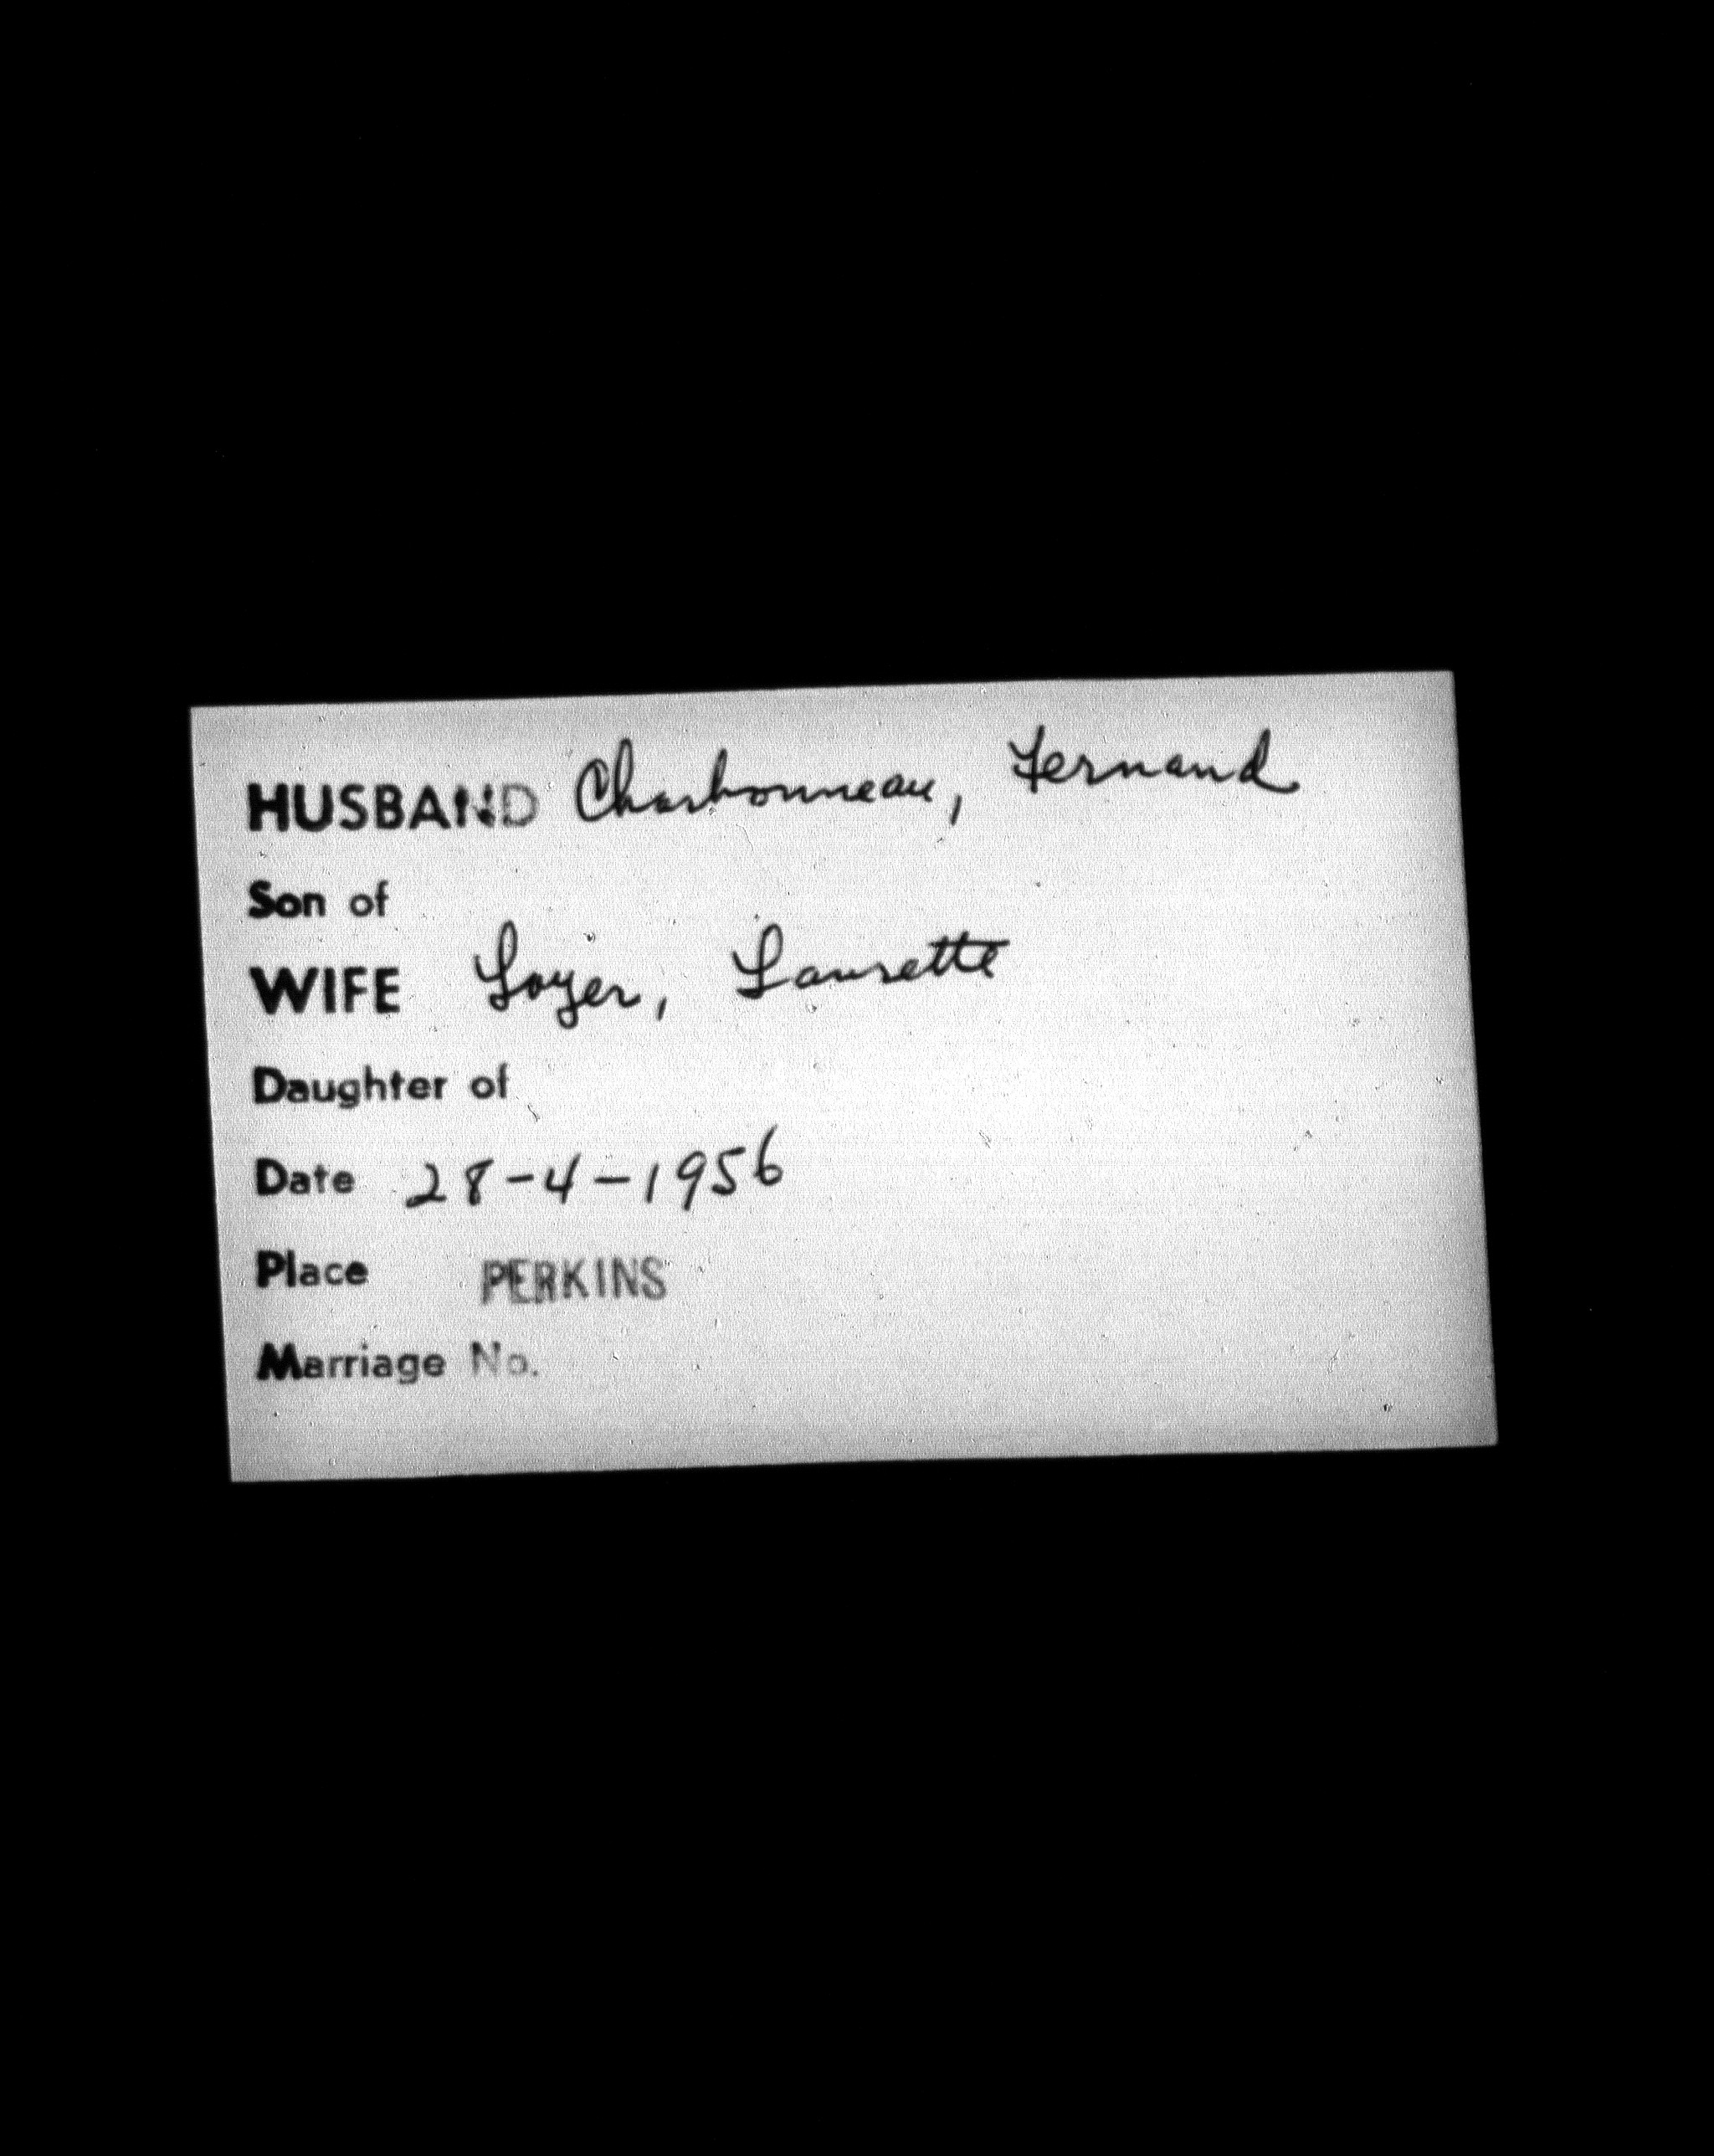 HUSBAND Charbonneau, Fernand
Son of
WIFE Loyer, Laurette
Daughter of
Date 28-4-1956
Place PERKINS
Marriage No.